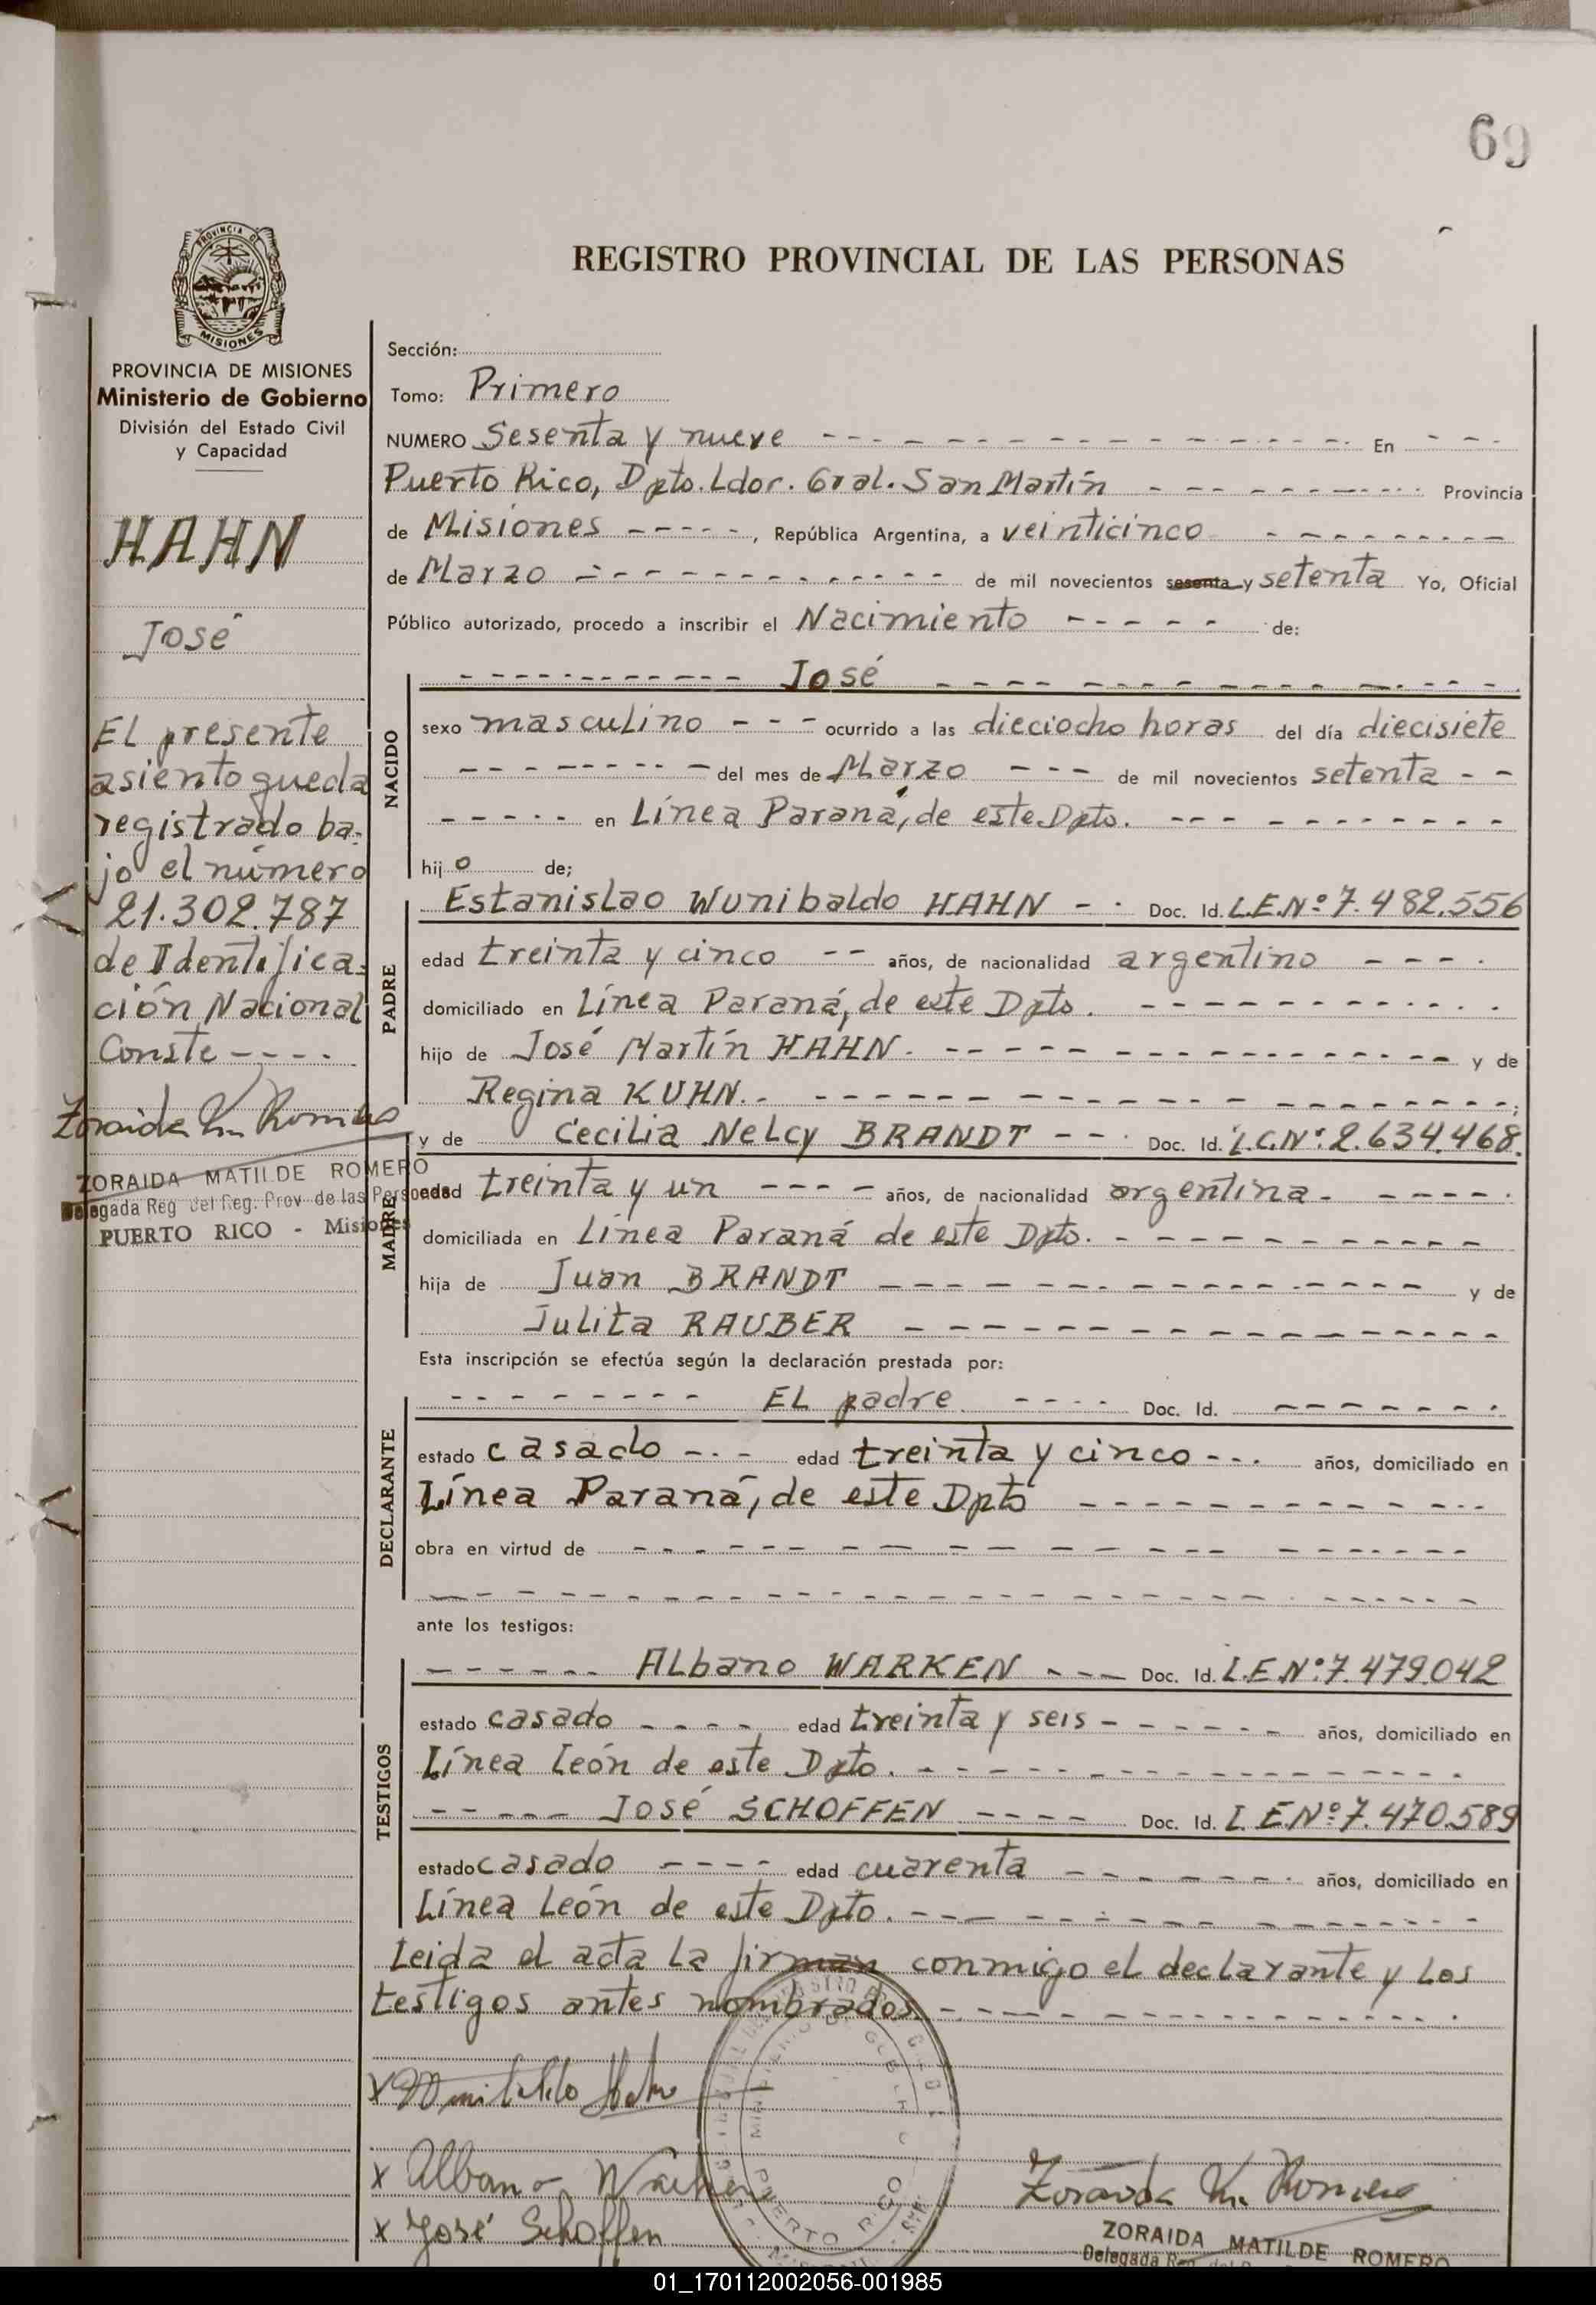 69
PROVINCIA DE
MISIONES
PROVINCIA DE MISIONES
Ministerio de Gobierno
División del Estado Civil
y Capacidad
HAHN
José
El presente
asiento queda
registrado ba-
jo el número
21.302.787
de Identifica-
ción Nacional
Conste ----
Zoraida M. Romero
ZORAIDA MATILDE ROMERO
Delegada Reg del Reg. Prov de las Personas
PUERTO RICO - Misiones
REGISTRO PROVINCIAL DE LAS PERSONAS
Sección:
Tomo: Primero
NUMERO Sesenta y nueve En
Puerto Rico, Dpto. Ldor. Gral. San Martín Provincia
de Misiones, República Argentina, a veinticinco
de Marzo de mil novecientos sesenta y setenta Yo, Oficial
Público autorizado, procedo a inscribir el Nacimiento de:
José
NACIDO
sexo masculino ocurrido a las dieciocho horas del día diecisiete
del mes de Marzo de mil novecientos setenta
en Línea Paraná, de este Dpto.
hijo de;
PADRE
Estanislao Wunibaldo HAHN Doc. Id. L.E.Nº 7.482.556
edad treinta y cinco años, de nacionalidad argentino
domiciliado en Línea Paraná, de este Dpto.
hijo de José Martín HAHN. y de
Regina KUHN.
MADRE
y de Cecilia Nelcy BRANDT Doc. Id. L.C.Nº 2.634.468.
edad treinta y un años, de nacionalidad argentina
domiciliada en Línea Paraná de este Dpto.
hija de Juan BRANDT y de
Julita RAUBER
Esta inscripción se efectúa según la declaración prestada por:
DECLARANTE
El padre. Doc. Id.
estado casado edad treinta y cinco años, domiciliado en
Línea Paraná, de este Dpto
obra en virtud de
ante los testigos:
TESTIGOS
Albano WARKEN Doc. Id. L.E.Nº 7.479.042
estado casado edad treinta y seis años, domiciliado en
Línea León de este Dpto.
José SCHOFFEN Doc. Id. L.E.Nº 7.470.589
estado casado edad cuarenta años, domiciliado en
Línea León de este Dpto.
Leida el acta la firman conmigo el declarante y los
testigos antes nombrados.
x Wunibaldo Hahn
x Albano Warken
x José Schoffen
PUERTO RICO
Zoraida M. Romero
ZORAIDA MATILDE ROMERO
Delegada Reg. del
01_170112002056-001985